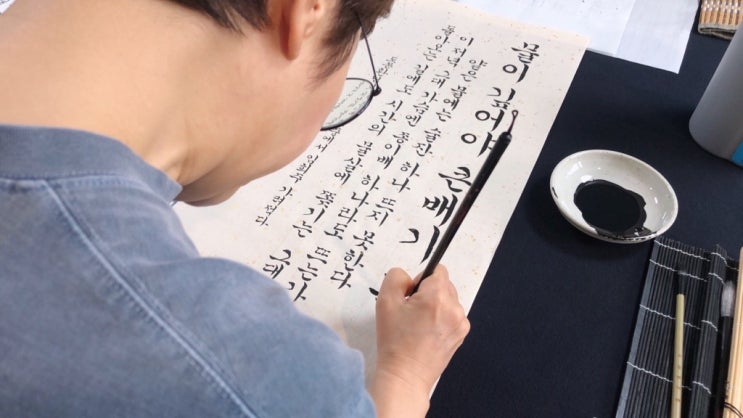 물이 깊어야 큰배가
얕은 물에는 술잔 하나 뜨지 못한다.
이 저녁 그대 가슴엔 종이배 하나라도 뜨는가
돌아오는 길에도 시간의 물살에 쫓기는 그대
에서 가려적다.